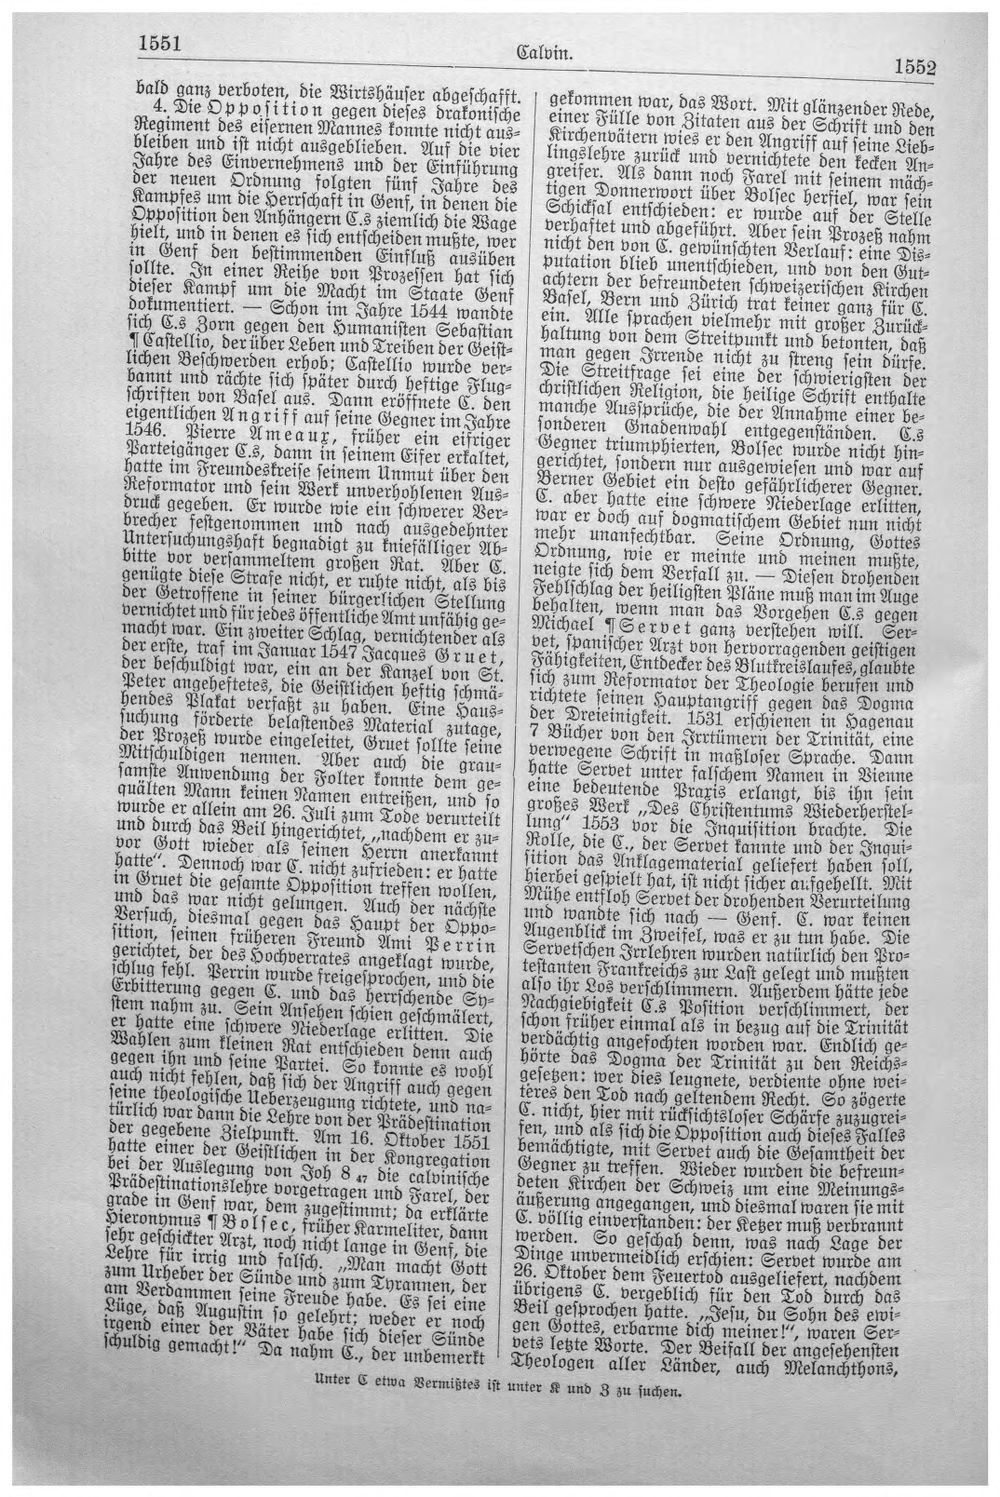 1551
Calvin.
1552
bald ganz verboten, die Wirtshäuser abgeschafft.
4. Die Opposition gegen dieses drakonische
Regiment des eisernen Mannes konnte nicht aus-
bleiben und ist nicht ausgeblieben. Auf die vier
Jahre des Einvernehmens und der Einführung
der neuen Ordnung folgten fünf Jahre des
Kampfes um die Herrschaft in Genf, in denen die
Opposition den Anhängern C.s ziemlich die Wage
hielt, und in denen es sich entscheiden mußte, wer
in Genf den bestimmenden Einfluß ausüben
sollte. In einer Reihe von Prozessen hat sich
dieser Kampf um die Macht im Staate Genf
dokumentiert. — Schon im Jahre 1544 wandte
sich C.s Zorn gegen den Humanisten Sebastian
¶ Castellio, der über Leben und Treiben der Geist-
lichen Beschwerden erhob; Castellio wurde ver-
bannt und rächte sich später durch heftige Flug-
schriften von Basel aus. Dann eröffnete C. den
eigentlichen Angriff auf seine Gegner im Jahre
1546. Pierre Ameaux, früher ein eifriger
Parteigänger C.s, dann in seinem Eifer erkaltet,
hatte im Freundeskreise seinem Unmut über den
Reformator und sein Werk unverhohlenen Aus-
druck gegeben. Er wurde wie ein schwerer Ver-
brecher festgenommen und nach ausgedehnter
Untersuchungshaft begnadigt zu kniefälliger Ab-
bitte vor versammeltem großen Rat. Aber C.
genügte diese Strafe nicht, er ruhte nicht, als bis
der Getroffene in seiner bürgerlichen Stellung
vernichtet und für jedes öffentliche Amt unfähig ge-
macht war. Ein zweiter Schlag, vernichtender als
der erste, traf im Januar 1547 Jacques Gruet,
der beschuldigt war, ein an der Kanzel von St.
Peter angeheftetes, die Geistlichen heftig schmä-
hendes Plakat verfaßt zu haben. Eine Haus-
suchung förderte belastendes Material zutage,
der Prozeß wurde eingeleitet, Gruet sollte seine
Mitschuldigen nennen. Aber auch die grau-
samste Anwendung der Folter konnte dem ge-
quälten Mann keinen Namen entreißen, und so
wurde er allein am 26. Juli zum Tode verurteilt
und durch das Beil hingerichtet, „nachdem er zu-
vor Gott wieder als seinen Herrn anerkannt
hatte“. Dennoch war C. nicht zufrieden: er hatte
in Gruet die gesamte Opposition treffen wollen,
und das war nicht gelungen. Auch der nächste
Versuch, diesmal gegen das Haupt der Oppo-
sition, seinen früheren Freund Ami Perrin
gerichtet, der des Hochverrates angeklagt wurde,
schlug fehl. Perrin wurde freigesprochen, und die
Erbitterung gegen C. und das herrschende Sy-
stem nahm zu. Sein Ansehen schien geschmälert,
er hatte eine schwere Niederlage erlitten. Die
Wahlen zum kleinen Rat entschieden denn auch
gegen ihn und seine Partei. So konnte es wohl
auch nicht fehlen, daß sich der Angriff auch gegen
seine theologische Ueberzeugung richtete, und na-
türlich war dann die Lehre von der Prädestination
der gegebene Zielpunkt. Am 16. Oktober 1551
hatte einer der Geistlichen in der Kongregation
bei der Auslegung von Joh 8 47 die calvinische
Prädestinationslehre vorgetragen und Farel, der
grade in Genf war, dem zugestimmt; da erklärte
Hieronymus ¶ Bolsec, früher Karmeliter, dann
sehr geschickter Arzt, noch nicht lange in Genf, die
Lehre für irrig und falsch. „Man macht Gott
zum Urheber der Sünde und zum Tyrannen, der
am Verdammen seine Freude habe. Es sei eine
Lüge, daß Augustin so gelehrt; weder er noch
irgend einer der Väter habe sich dieser Sünde
schuldig gemacht!“ Da nahm C., der unbemerkt
gekommen war, das Wort. Mit glänzender Rede,
einer Fülle von Zitaten aus der Schrift und den
Kirchenvätern wies er den Angriff auf seine Lieb-
lingslehre zurück und vernichtete den kecken An-
greifer. Als dann noch Farel mit seinem mäch-
tigen Donnerwort über Bolsec herfiel, war sein
Schicksal entschieden: er wurde auf der Stelle
verhaftet und abgeführt. Aber sein Prozeß nahm
nicht den von C. gewünschten Verlauf: eine Dis-
putation blieb unentschieden, und von den Gut-
achtern der befreundeten schweizerischen Kirchen
Basel, Bern und Zürich trat keiner ganz für C.
ein. Alle sprachen vielmehr mit großer Zurück-
haltung von dem Streitpunkt und betonten, daß
man gegen Irrende nicht zu streng sein dürfe.
Die Streitfrage sei eine der schwierigsten der
christlichen Religion, die heilige Schrift enthalte
manche Aussprüche, die der Annahme einer be-
sonderen Gnadenwahl entgegenständen. C.s
Gegner triumphierten, Bolsec wurde nicht hin-
gerichtet, sondern nur ausgewiesen und war auf
Berner Gebiet ein desto gefährlicherer Gegner.
C. aber hatte eine schwere Niederlage erlitten,
war er doch auf dogmatischem Gebiet nun nicht
mehr unanfechtbar. Seine Ordnung, Gottes
Ordnung, wie er meinte und meinen mußte,
neigte sich dem Verfall zu. — Diesen drohenden
Fehlschlag der heiligsten Pläne muß man im Auge
behalten, wenn man das Vorgehen C.s gegen
Michael ¶ Servet ganz verstehen will. Ser-
vet, spanischer Arzt von hervorragenden geistigen
Fähigkeiten, Entdecker des Blutkreislaufes, glaubte
sich zum Reformator der Theologie berufen und
richtete seinen Hauptangriff gegen das Dogma
der Dreieinigkeit. 1531 erschienen in Hagenau
7 Bücher von den Irrtümern der Trinität, eine
verwegene Schrift in maßloser Sprache. Dann
hatte Servet unter falschem Namen in Vienne
eine bedeutende Praxis erlangt, bis ihn sein
großes Werk „Des Christentums Wiederherstel-
lung“ 1553 vor die Inquisition brachte. Die
Rolle, die C., der Servet kannte und der Inqui-
sition das Anklagematerial geliefert haben soll,
hierbei gespielt hat, ist nicht sicher aufgehellt. Mit
Mühe entfloh Servet der drohenden Verurteilung
und wandte sich nach — Genf. C. war keinen
Augenblick im Zweifel, was er zu tun habe. Die
Servetschen Irrlehren wurden natürlich den Pro-
testanten Frankreichs zur Last gelegt und mußten
also ihr Los verschlimmern. Außerdem hätte jede
Nachgiebigkeit C.s Position verschlimmert, der
schon früher einmal als in bezug auf die Trinität
verdächtig angefochten worden war. Endlich ge-
hörte das Dogma der Trinität zu den Reichs-
gesetzen: wer dies leugnete, verdiente ohne wei-
teres den Tod nach geltendem Recht. So zögerte
C. nicht, hier mit rücksichtsloser Schärfe zuzugrei-
fen, und als sich die Opposition auch dieses Falles
bemächtigte, mit Servet auch die Gesamtheit der
Gegner zu treffen. Wieder wurden die befreun-
deten Kirchen der Schweiz um eine Meinungs-
äußerung angegangen, und diesmal waren sie mit
C. völlig einverstanden: der Ketzer muß verbrannt
werden. So geschah denn, was nach Lage der
Dinge unvermeidlich erschien: Servet wurde am
26. Oktober dem Feuertod ausgeliefert, nachdem
übrigens C. vergeblich für den Tod durch das
Beil gesprochen hatte. „Jesu, du Sohn des ewi-
gen Gottes, erbarme dich meiner!“, waren Ser-
vets letzte Worte. Der Beifall der angesehensten
Theologen aller Länder, auch Melanchthons,
Unter C etwa Vermißtes ist unter K und Z zu suchen.